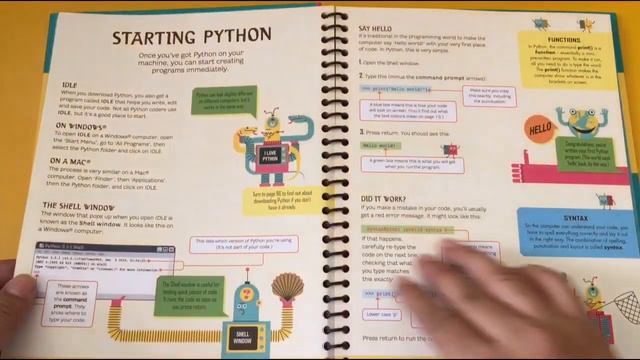 STARTING PYTHON
Once you've got Python on your
machine, you can start creating
programs immediately.
IDLE
When you download Python, you also get a
program called IDLE that helps you write, edit
and save your code. Not all Python coders use
IDLE, but it's a good place to start.
ON WINDOWS®
To open IDLE on a Windows® computer, open
the 'Start Menu', go to 'All Programs', then
select the Python folder and click on IDLE.
ON A MAC®
The process is very similar on a Mac®
computer. Open 'Finder', then 'Applications',
then the Python folder, and click on IDLE.
Python can look slightly different
on different computers, but it
works in the same way.
I LOVE
PYTHON
Turn to page 90 to find out about
downloading Python if you don't
have it already.
THE SHELL WINDOW
The window that pops up when you open IDLE is
known as the Shell window. It looks like this on
a Windows® computer.
This tells which version of Python you're using
(it's not part of your code).
These arrows are
known as the
command
prompt. They
show where to
type your code.
The Shell window is useful for
testing quick pieces of code.
It runs the code as soon as
you press return.
SHELL
WINDOW
SAY HELLO
It's traditional in the programming world to make the
computer say 'Hello world!' with your very first piece
of code. In Python, this is very simple.
1. Open the Shell window.
2. Type this (minus the command prompt arrows):
>>> print("Hello world!")
Make sure you copy
this exactly, including
the punctuation.
3. Press return. You should see this:
Hello world!
A green box means this is what you will get
when you run the program.
DID IT WORK?
If you make a mistake in your code, you'll usually
get a red error message. It might look like this:
SyntaxError: invalid syntax
If that happens,
carefully re-type the
code on the next
checking that what
you type matches
this exactly
>>> print(
Lower case 'p'
Press return to run the
FUNCTIONS
In Python, the command print() is a
function – essentially a mini,
prewritten program. To make it run,
all you need to do is type the word.
The print() function makes the
computer show whatever is in
the brackets on screen.
HELLO
Congratulations, you've
written your first Python
program. (The world says
'hello' back, by the way.)
SYNTAX
So the computer can understand your code, you
have to spell everything correctly and lay it out
in the right way. The combination of spelling,
punctuation and layout is called syntax.